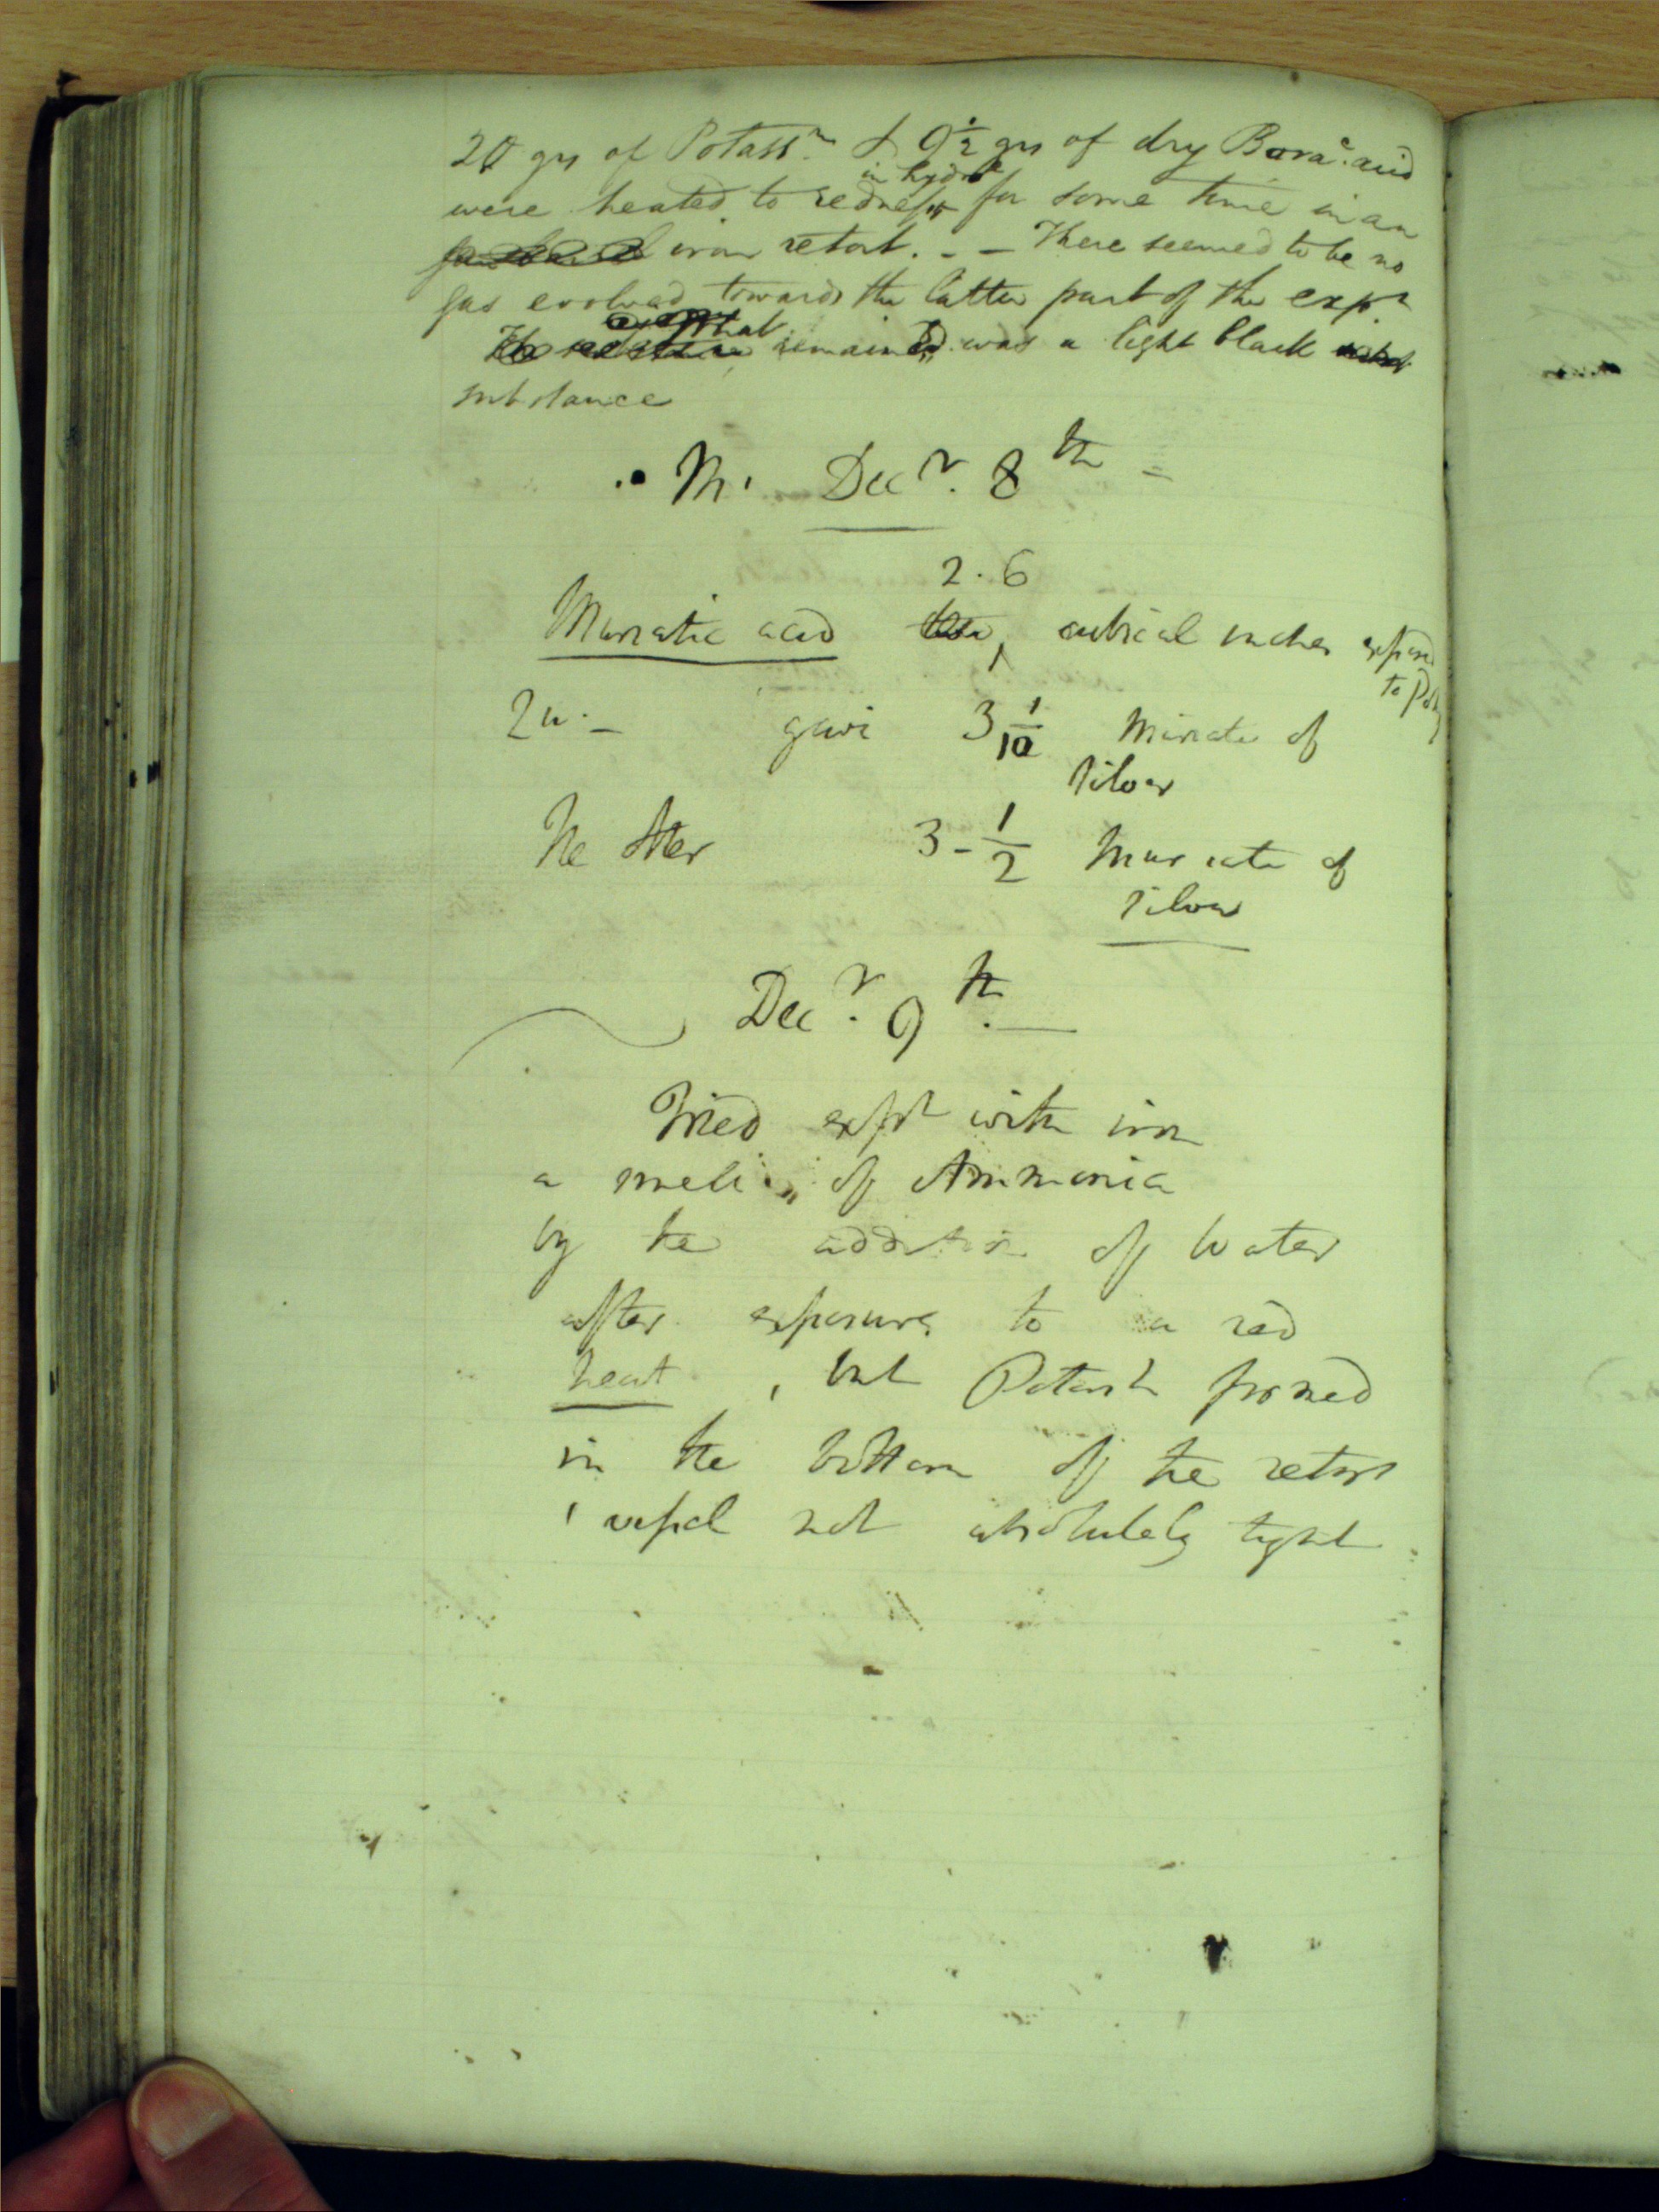 20 grs of Potassm & 9½ grs of dry Borac. acid
in hydroe
were heated to redness for some time in an
iron retort. - - There seemed to be no
gas evolved towards the latter part of the expt
What
remained was a light black
substance
M. Decr. 8th -
2.6
Muriatic acid cubical inches exposed
to Pot
gave 3 1/10 Muriate of
silver
The other 3-1/2 Muriate of
silver
Decr. 9th.
Tried expt with iron
a smell of Ammonia
by the addition of Water
after exposure to a red
heat , but Potash formed
in the bottom of the retort
vessel not absolutely tight